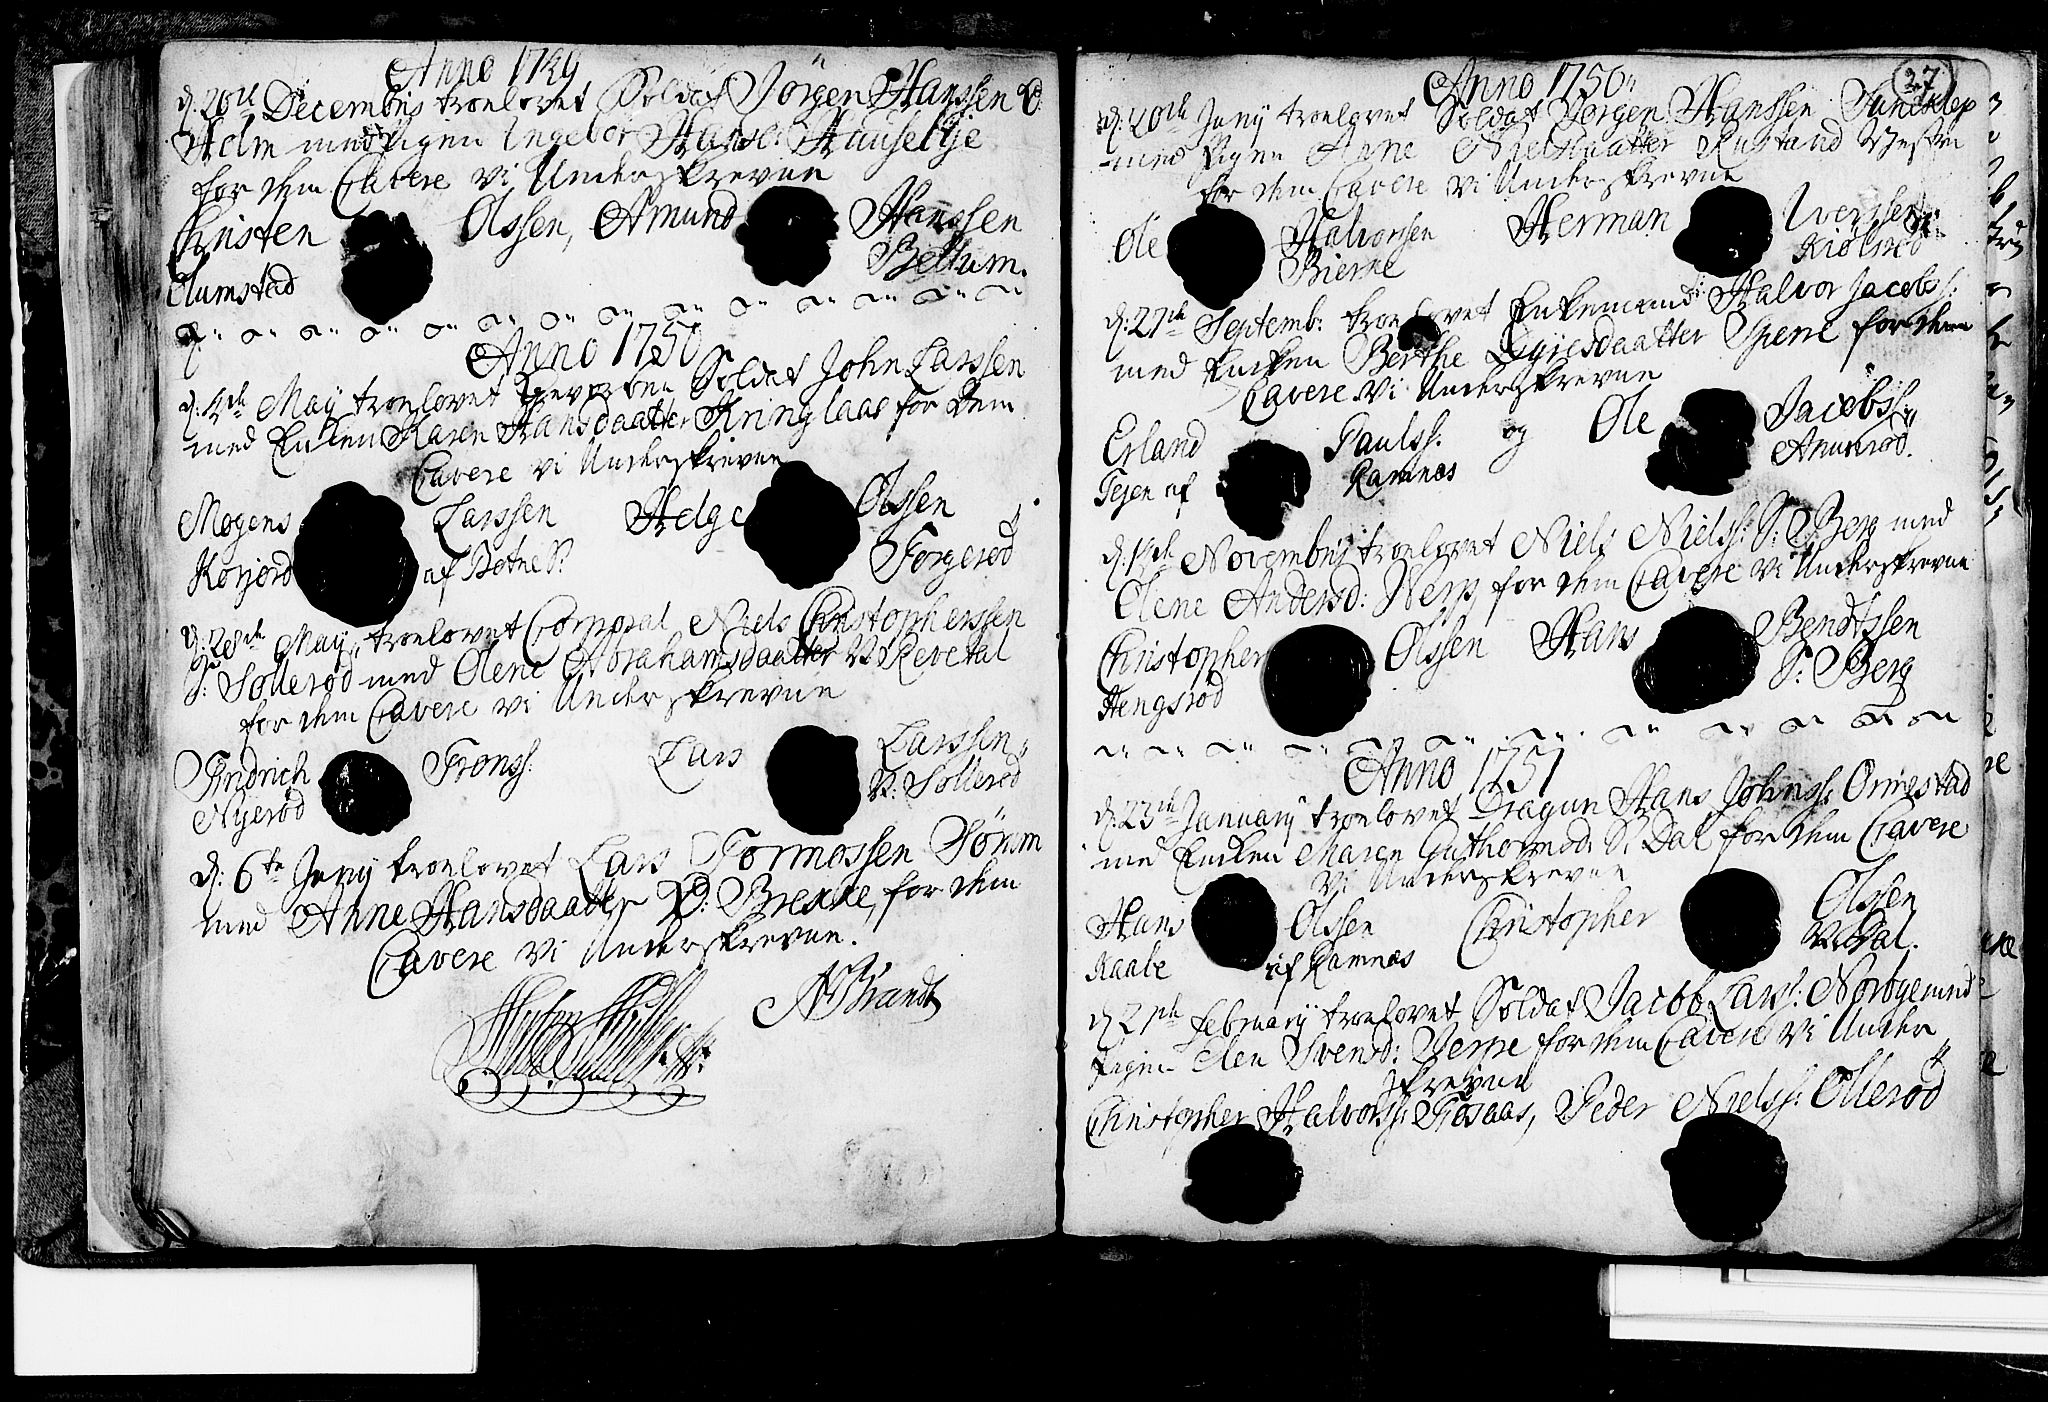 Anno 1749
d: 20de Decembris troelovet Soldat Jörgen Hanssen V.
Holm med Pigen Ingebor Hansd:
for dem Cavere vi Underskrevne
Christen Olssen, Amund Hanssen
Olumstad Bettum.
Anno 1750
d: 4de May troelovet Soldat John Larssen
med Enken Karen Hansdaatter Kringlaas for dem
Cavere vi Underskrevne
Mogens Larssen Helge Olssen
af Botne S: Torgerød
d: 28de May troelovet Corporal Niels Christopherssen
S: Sollerød med Olene Abrahamsdaatter V: Revetal
for dem Cavere vi Underskrevne
Hindrich Tronss: Lars Larssen
Nyerød V: Sollerød
d: 6te Juny troelovet Lars Tormossen Sömm
med Anne Hansdaatter V: Brekke, for dem
Cavere vi Underskrevne.
Brandt
27
Anno 1750
d: 20de Juny troelovet Soldat Jörgen Hanssen
med Pigen Anne Nielsdaatter Rustand Vestre
for dem Cavere vi Underskrevne
Ole Halvorsen Herman Iverssen
Bierne Kiølerød
d: 27de Septemb: troelovet Enkemand: Halvor Jacobs:
med Encken Berthe for dem
Cavere vi Underskrevne
Erland Paulss: og Ole Jacobss:
af Ramnæs Amunrød.
d: Novembris troelovet Niels Nielss: S: Berg med
Olene Andersd: for dem Cavere vi Underskrevne
Christopher Olssen Hans Bendtssen
Hengsrød S: Berg
Anno 1751
d: 23de January troelovet Dragun Hans Johnss: Ormestad
med Encken Maren Guthormsd: S: Dal for dem Cavere
vi Underskrevne
Hans Olssen Christopher Olssen
Raabe af Ramnæs V: Dal.
d 21de February troelovet Soldat Jacob Larss: Norbye med
Pigen Elen Svensd: for dem Cavere vi Under
skrevne
Christopher Halvorss: Peder Nielss: Ollerød